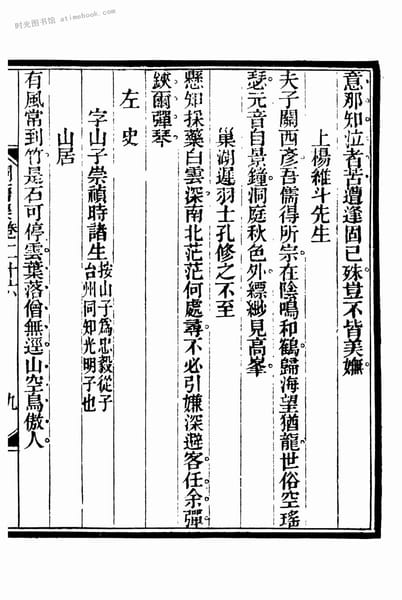 时光图书馆 atimebook.com
意那知泣者苦遭逢固已殊豈不皆美嫵
上楊維斗先生
夫子關西彥吾儒得所宗在陰鳴和鶴歸海望猶龍世俗空瑤
瑟元音自景鐘洞庭秋色外縹緲見高峯
巢湖遲羽士孔修之不至
懸知採藥白雲深南北茫茫何處尋不必引嫌深避客任余彈
鋏爾彈琴
左史
字山子崇禎時諸生按山子爲忠毅從子
台州同知光明子也
山居
有風常到竹是石可停雲葉落僧無逕山空鳥傲人
卷二十六
九